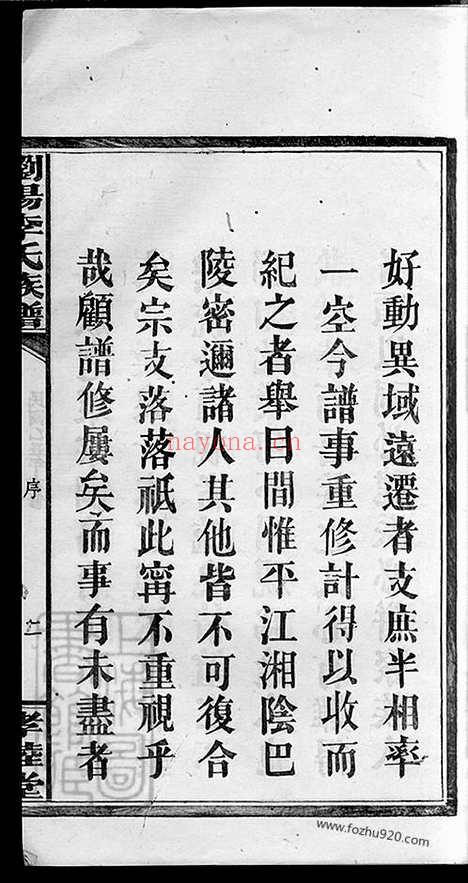 好動異域遠遷者支庶半相率
一空今譜事重修計得以收而
紀之者舉目間惟平江湘陰巴
陵密邇諸人其他皆不可復合
矣宗支落落祇此甯不重視乎
哉顧譜修屢矣而事有未盡者
瀏陽李氏族譜
序
孝睦堂
hayuna.cn
www.fozhu920.com